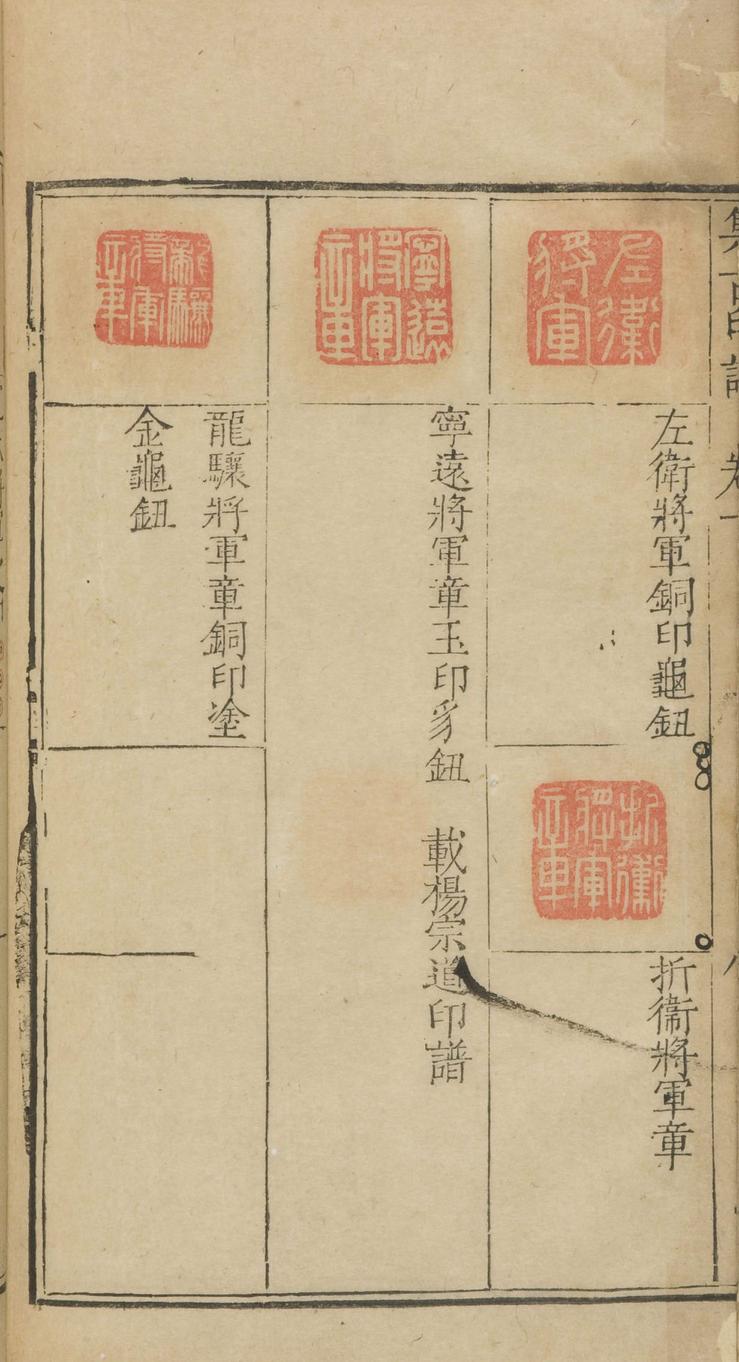 集古印譜 卷一
左衛
將軍
左衛將軍銅印龜鈕
折衝
將軍
章
折衝將軍章
寧遠
將軍
章
寧遠將軍章玉印豸鈕 載楊宗道印譜
龍驤
將軍
章
龍驤將軍章銅印塗
金龜鈕